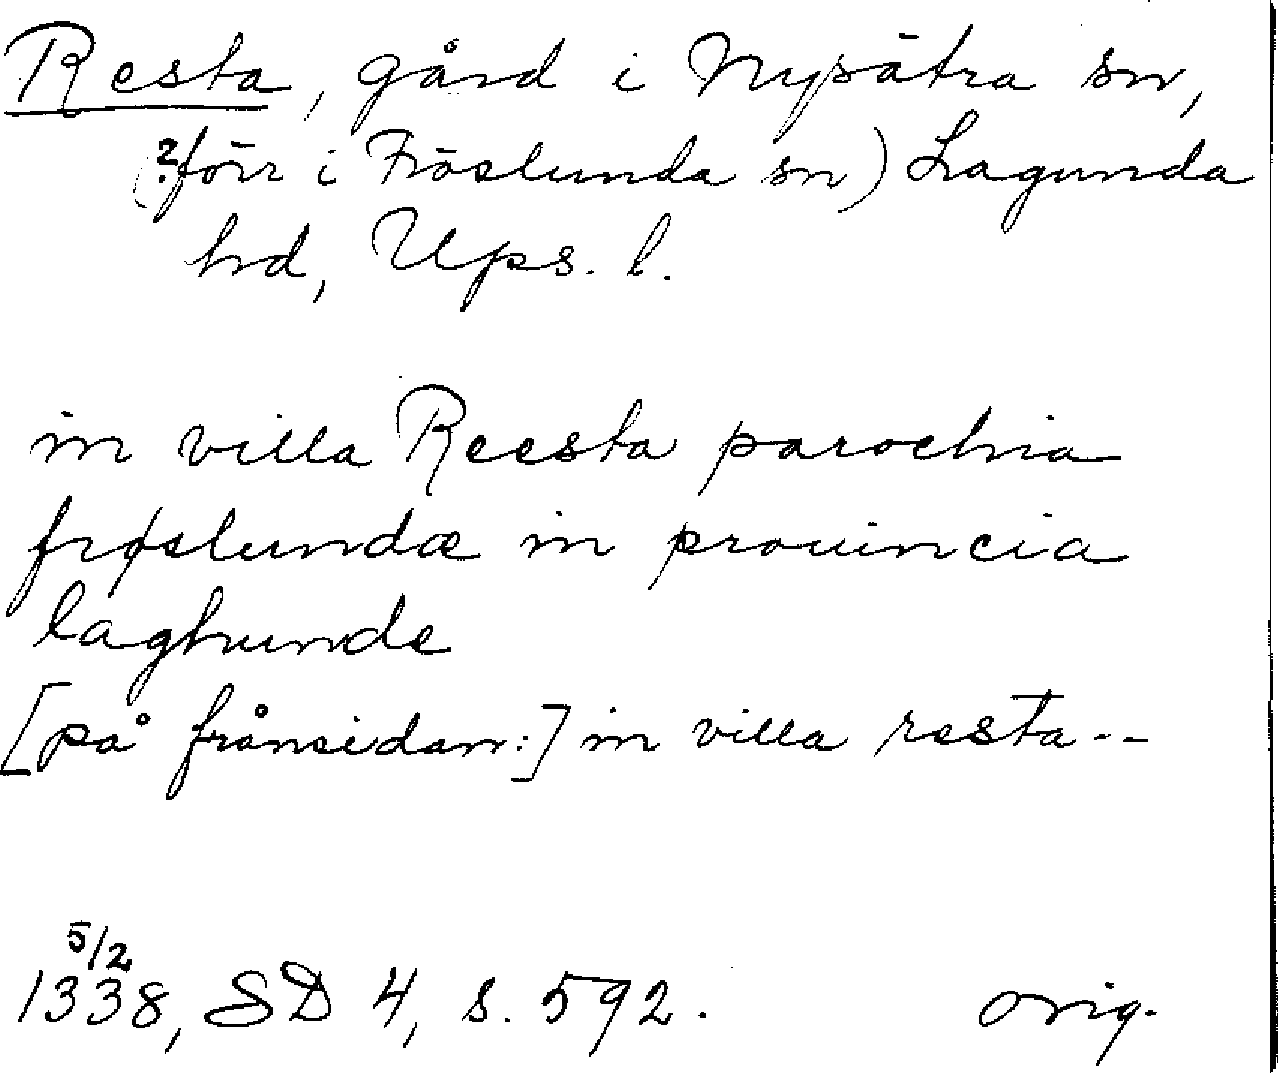 Resta, gård i Nysätra sn,
(?förr i Fröslunda sn) Lagunda
hd, Ups. l.
in villa Reesta parochia
frøslundæ in prouincia
laghunde
[på frånsidan:] in villa resta--
5/2
1338, SD 4, s. 592. orig.